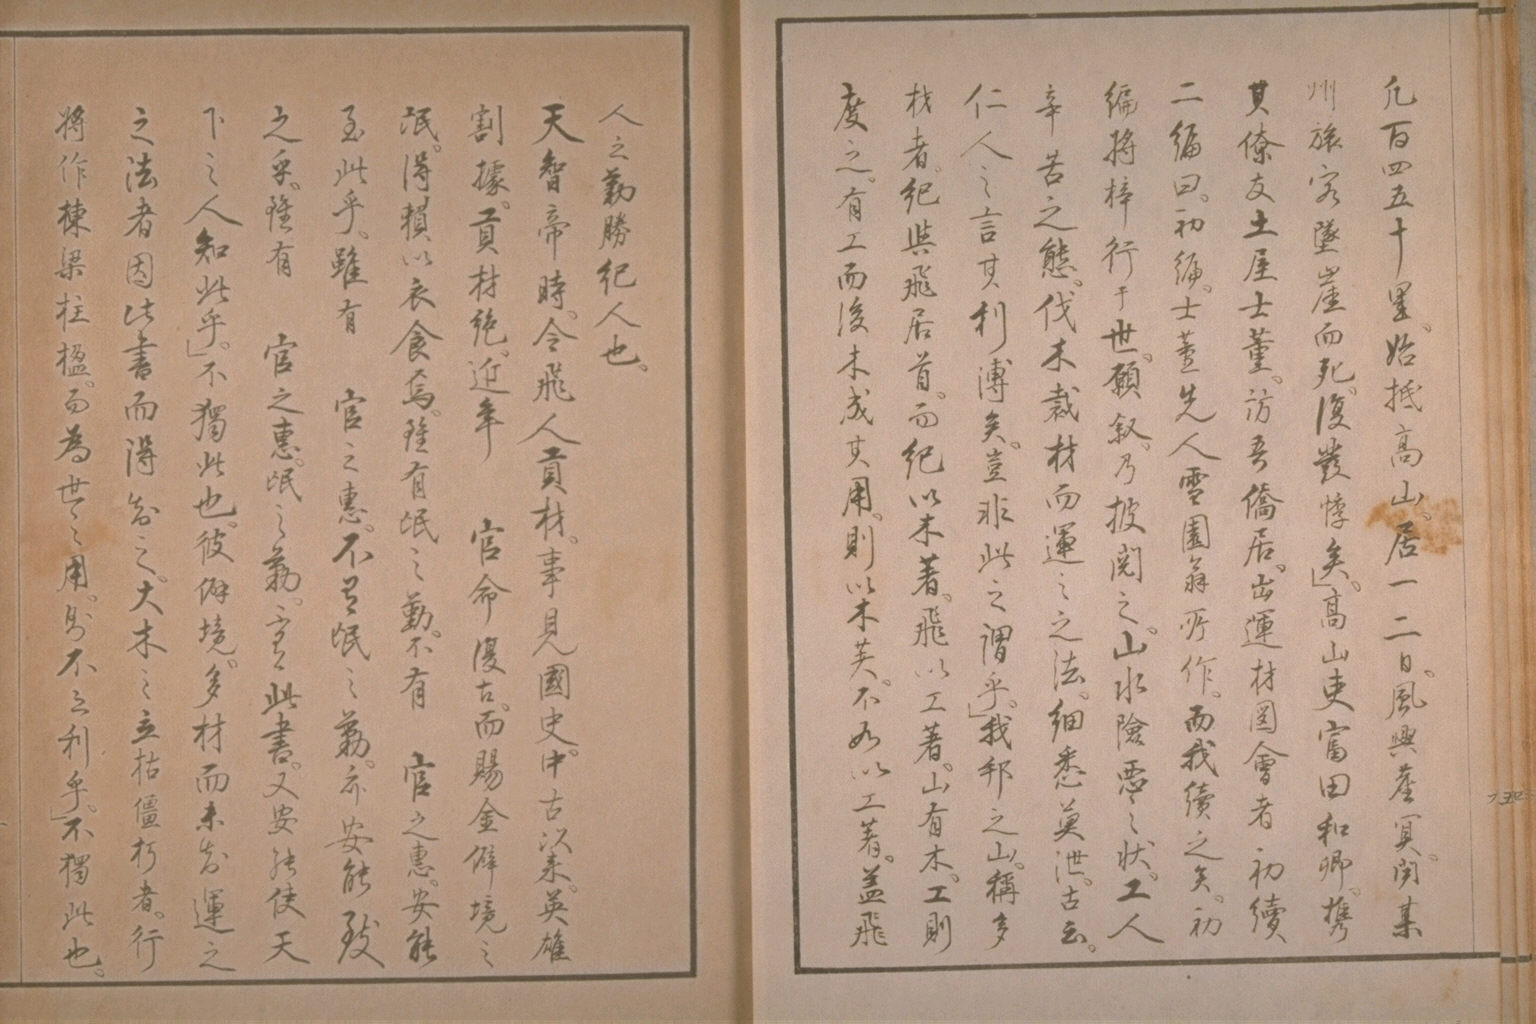 凡百四五十里。始抵高山。居一二日。風興蓙冥。閲某
州旅客墜崖而死。復發悸矣」高山吏富田和卿。携
其僚友土屋士董。訪吾僑居。出運材図會者初續
二編曰。初編。士董先人雪園翁所作。而我續之矣。初
編将梓行于世。願叙。乃披閲之。山水險惡之状。工人
辛苦之態。伐木裁材而運之之法。細悉莫泄。古云。
仁人之言其利溥矣。豈非此之謂乎」我邦之山。稱多
材者。紀與飛居首。而紀以木著。飛以工著。山有木。工則
度之。有工而後木成其用。則以木芙。不如以工著。蓋飛
人之勤勝紀人也。
天智帝時。令飛人貢材。事見國史。中古以来。英雄
割據。貢材絶。近年 官命復古。而賜金僻境之
氓。得頼以衣食焉。雖有氓之勤。不有 官之惠。安能
至此乎。雖有 官之惠。不有氓之勤。亦安能致
之乎。雖有 官之惠。氓之勤。微此書。又安能使天
下之人知此乎」不獨此也。彼僻境。多材而未知運之
之法者因此書而得知之。大木之立枯僵朽者。行
将作棟梁柱楹。而為世之用。則不亦利乎」不獨此也。